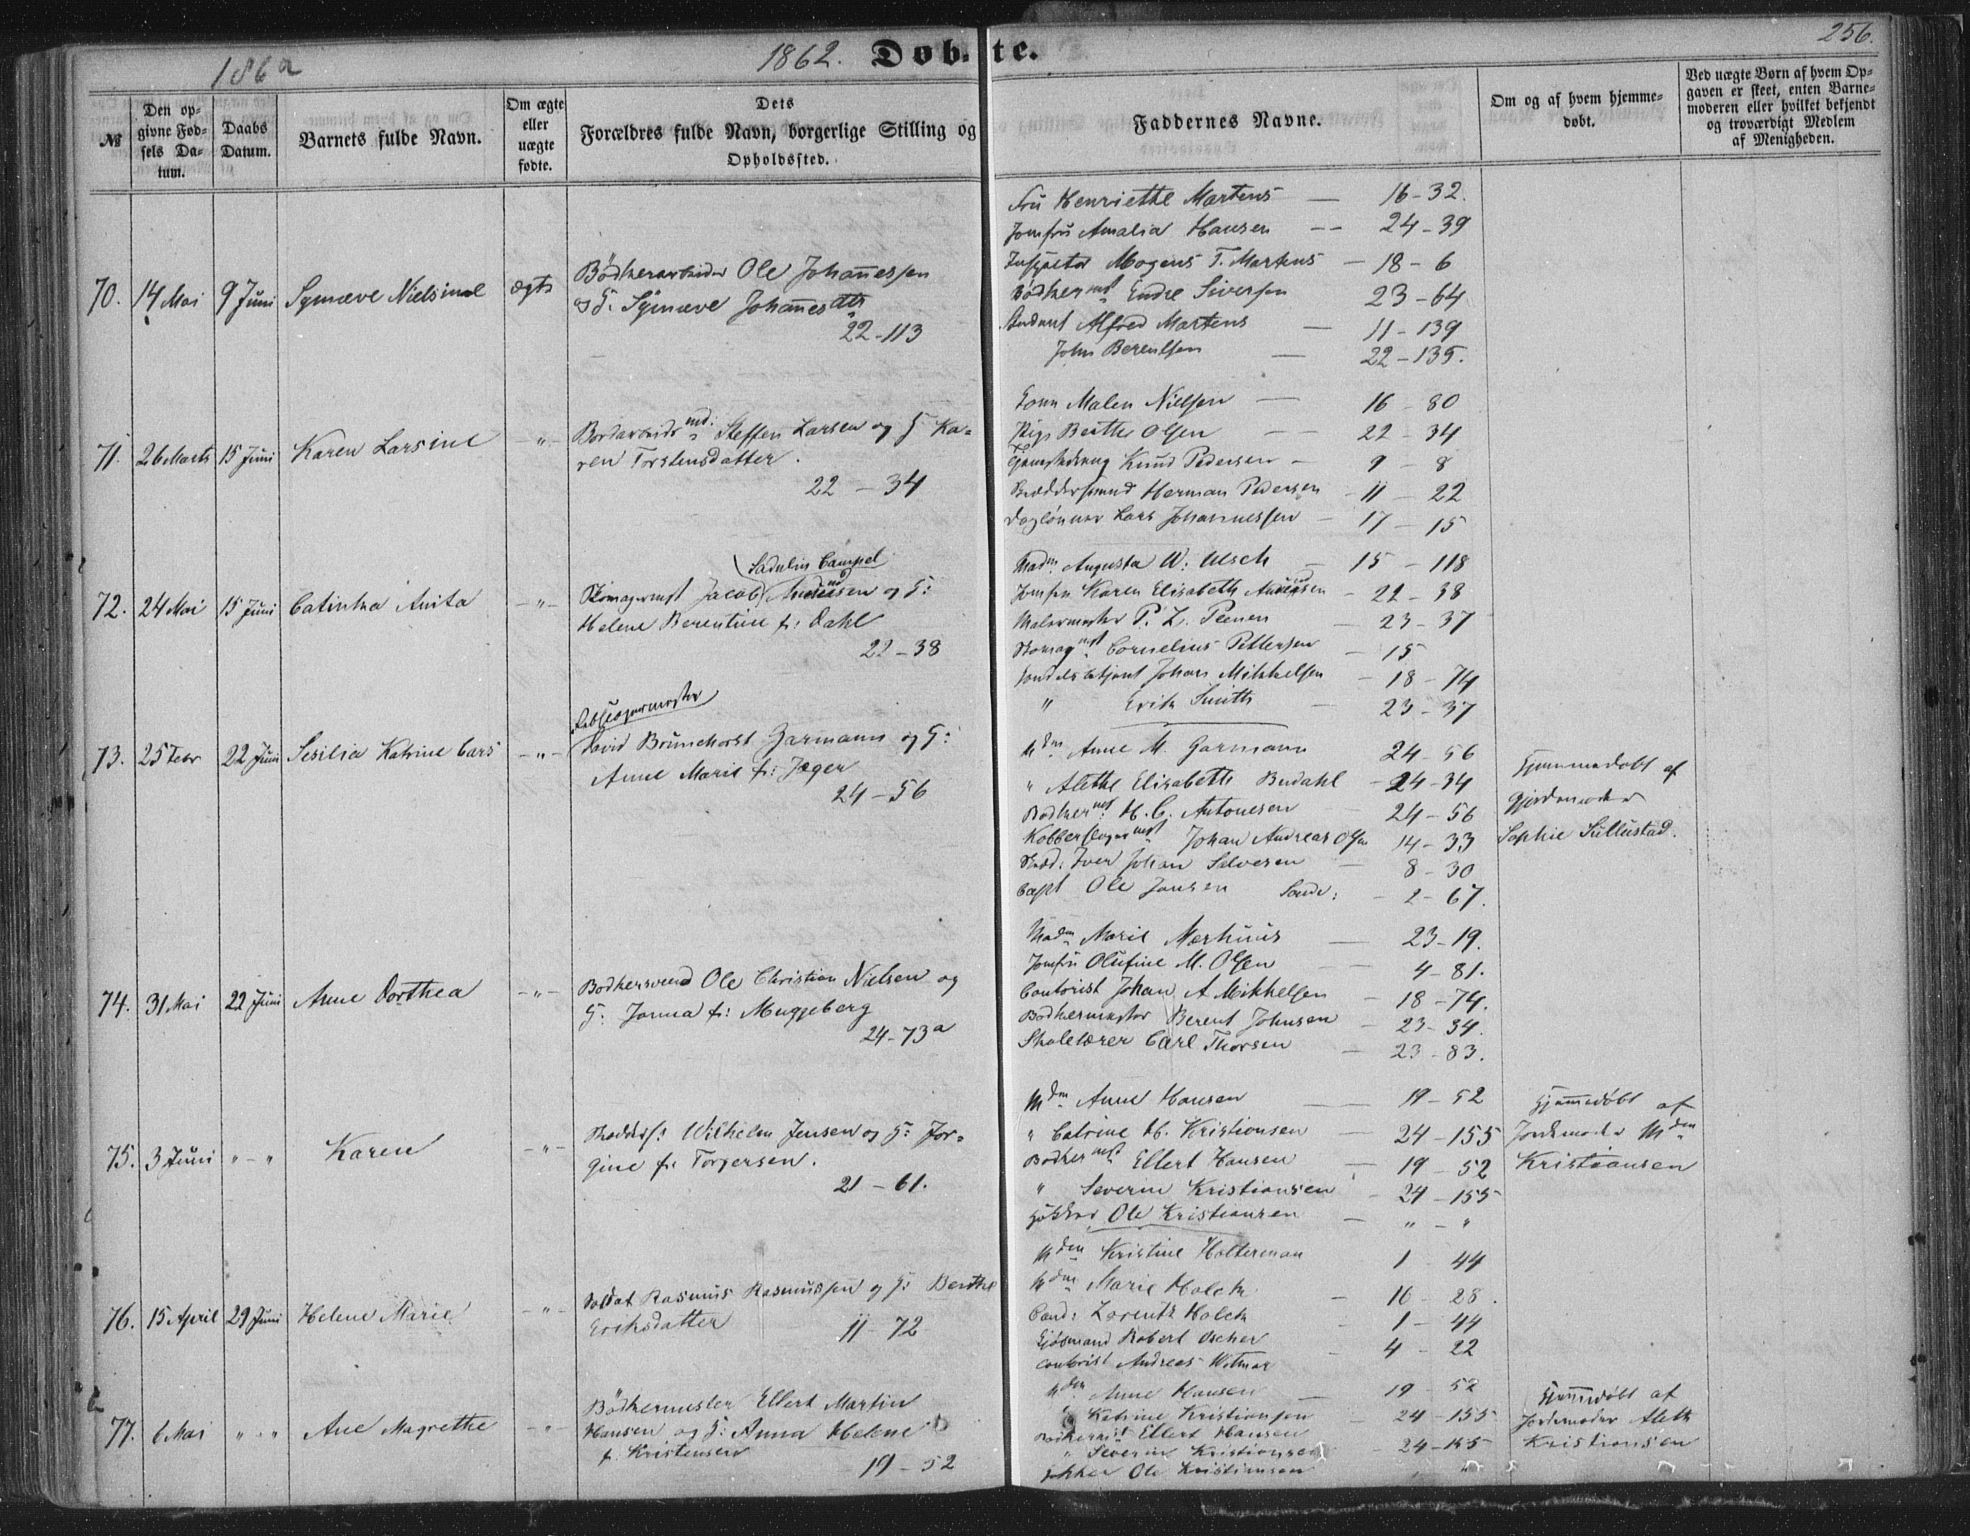 186a
1862. Døb-te. 256.
№
Den opgivne Fødsels Datum.
Daabs Datum.
Barnets fulde Navn.
Om ægte eller uægte fødte.
Dets Forældres fulde Navn, borgerlige Stilling og Opholdssted.
Faddernes Navne.
Om og af hvem hjemmedøbt.
Ved uægte Børn af hvem Opgaven er skeet, enten Barnemoderen eller hvilket bekjendt og troværdigt Medlem af Menigheden.
70. 14 Mai 9 Juni Synnæve Nielsine ægte
Bødkerarbeider Ole Johannessen
og H. Synnæve Johannesdtr
22-113
Fru Henriette Martens — 16-32.
Jomfru Amalia Hansen -- 24-39
Inspector Mogens T. Martens — 18-6
Bødkermst Endre Siversen 23-64
Student Alfred Martens — 11-139
John Berentsen — 22-135.
71. 26 Marts 15 Juni Karen Larsine -"-
Bordarbeidsmd. Steffen Larsen og H Ka-
ren Torstensdatter.
22-34
Kone Malen Nielsen — 16-80
Pige Berthe Olsen — 22-34
Knud Pedersen - 9-8
Herman Pedersen - 11-22
Daglønner Lars Johannessen - 17-15
72. 24 Mai 15 Juni Catinka Anita -"-
Sadulin Campel
Skomagermst Jacob Andersen og H:
Helene Berentine f: Dahl
22-38
Madm. Augusta W: Ulsch - 15-118
Jomfru Karen Elisabeth Andersen - 22-38
Malermester P. L. Peenen - 23-37
Skomagmst. Cornelius Pettersen - 15
Handelsbetjent Johan Mikkelsen - 18-74
" Erik Smith - 23-37
73. 25 Febr 22 Juni Sesilia Katrine Cars -"-
Rebslagermester
David Brunchorst Garmann og H:
Anne Marie f: Jæger
24-56
Mdm Anne M. Garmann 24-56
" Alethe Elisabeth Budahl - 24-34
Bødkermst. H. C. Antonesen 24-56
Kobberslagermst Johan Andreas Olsen 14-33
Iver Johan Selvesen - 8-30
Capt Ole Jansen Sandv: - 2-67.
Hjemmedøbt af
Gjordemoder
Sophie Sillustad.
74. 31 Mai 22 Juni Anne Dorthea -"-
Bødkersvend Ole Christian Nielsen og
H: Jonna f: Muggeberg
24-73a
Madm Marie Nerhuus — 23-19.
Jomfru Olufine M. Olsen — 4-81.
Contorist Johan A Mikkelsen - 18-74.
Bødkermester Berent Johnsen - 23-34.
Skolelærer Carl Thorsen - 23-83.
75. 3 Juni "-" Karen -"-
Wilhelm Jensen og H: Jør-
gine f: Torgersen.
21-61.
Mdm Anne Hansen — 19-52
" Catrine H. Kristiansen — 24-155
Bødkermst Ellert Hansen — 19-52
" Severin Kristiansen - 24-155
Ole Kristiansen - "-"
Hjemmedøbt af
Jordemoder Mdm
Kristiansen
76. 15 April 29 Juni Helene Marie -"-
Soldat Rasmus Rasmussen og H: Berthe
Eriksdatter 11-72
Mdm Kristine Holterman 1-44
Mdm Marie Holck - 16-28.
Cand: Lorentz Holck - 1-44
Robert Ascher - 4-22
Contorist Andreas Witmar
77. 6 Mai "-" Ane Magrethe -"-
Bødkermester Ellert Martin
Hansen og H: Anna Helene
f. Kristensen
19-52
Mdm Anne Hansen — 19-52
" Katrine Kristiansen - 24-155
Bødkermst Ellert Hansen
" Severin Kristiansen 24-155
Ole Kristiansen "
Hjemmedøbt af
Jordemoder Aleth
Kristiansen